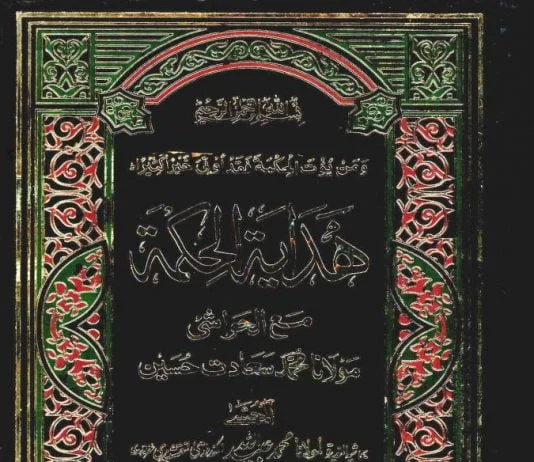 بسم الله الرحمن الرحيم
ومن يؤت الحكمة فقد أوتي خيرا كثيرا
هداية الحكمة
مع الحواشي
مولانا محمد سعادت حسين